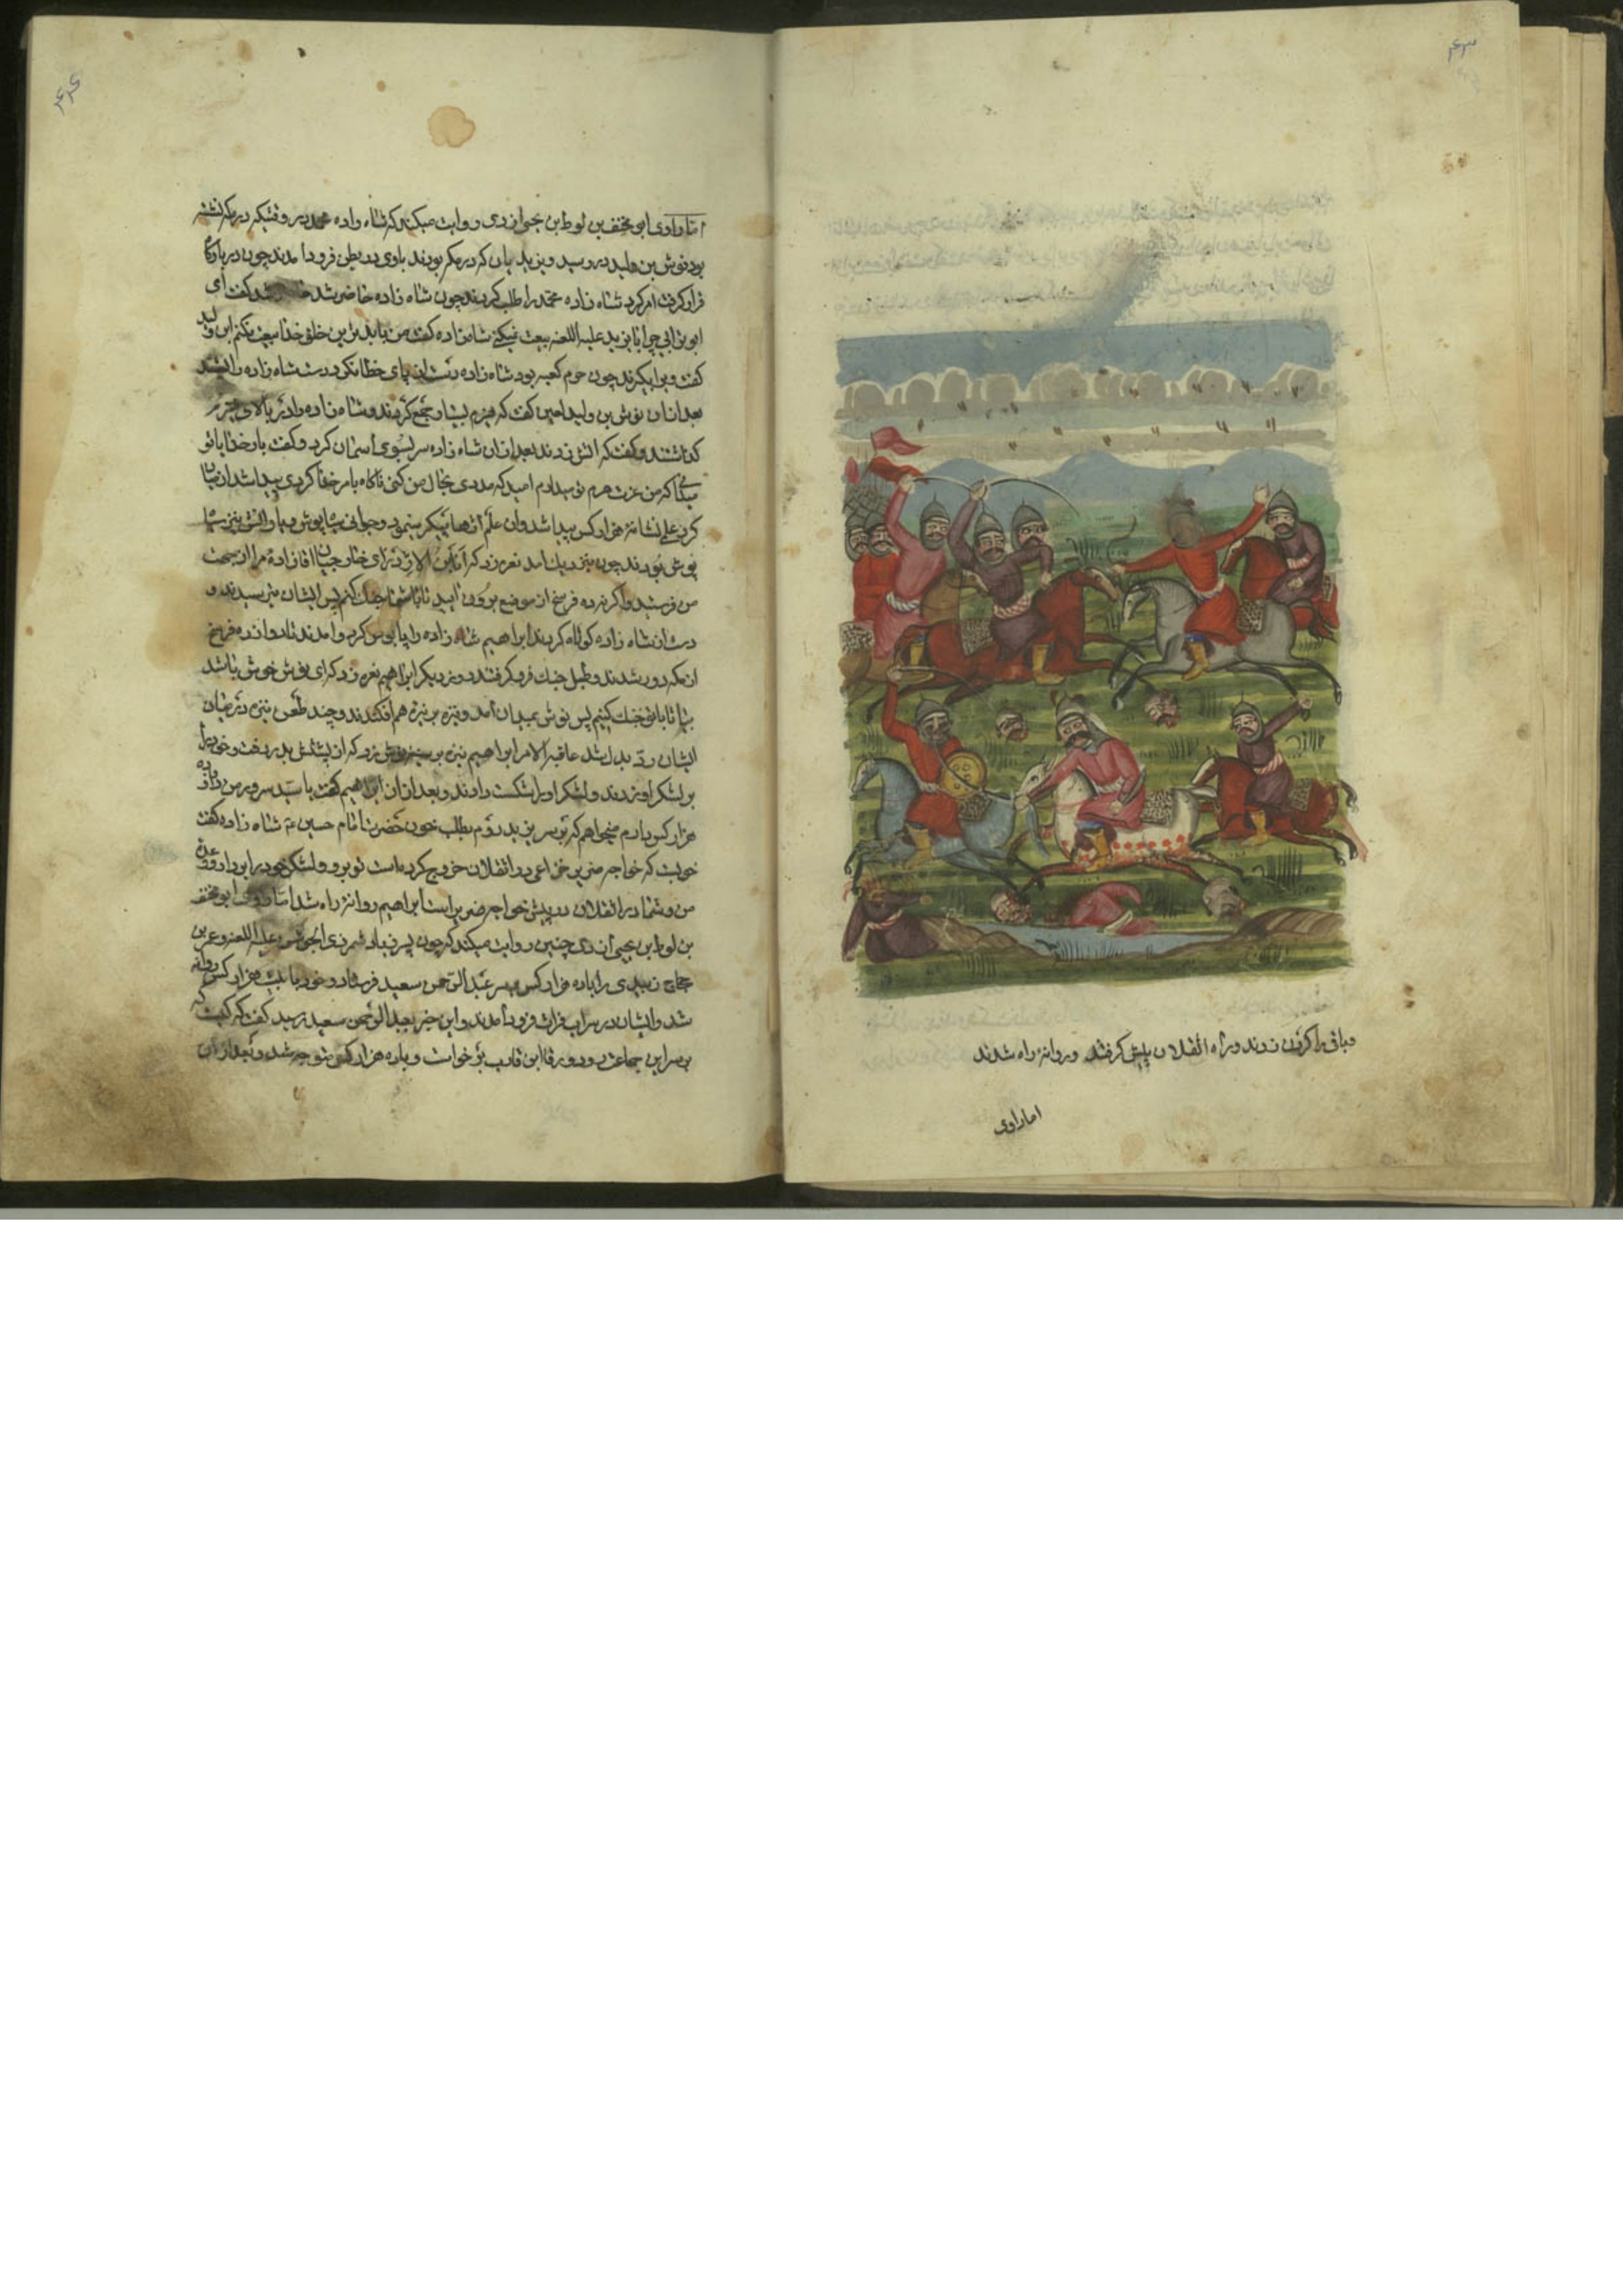 ۴۳
وباقی را کردن زدند وراه انقلان پیش کرفتند وروانهٔ راه شدند
اما راوی
۴۴
اما راوی ابو مخنف بن لوط بن یحیی ازدی روایت میکند که شاه زاده محمد در وقتیکه در مکه نشسته
بود نوش بن ولید در رسید ویزیدیان که در مکه بودند باوی در بطن فرود امدند چون در بارگاه
قرار کرفت امر کرد شاه زاده محمد را طلب کردند چون شاه زاده حاضر شد گفت ای
ابو ترابی چرا با یزید علیه اللعنه بیعت نمیکنی شاهزاده گفت من با بدترین خلق خدا بیعت نکنم ابن ولید
گفت ویرا بگیرند چون حرم کعبه بود شاه زاده
بعد ازان نوش بن ولید لعین گفت که هیزم بسیار جمع کردند و شاه زاده را در بالای هیزم
گذاشتند و گفت که اتش زدند بعد ازان شاه زاده سر بسوی آسمان کرد و گفت بار خدایا تو
میدانی که من عزت حرم تو میدارم امید که مددی بحال من کنی ناگاه بامر خدا کردی پیدا شد از میان
کرد علم نشانهٔ هزار کس پیدا شد وان علم اژدها پیکر بود و جوانی سیاه پوش
پوش بودند چون نزدیک امد نعره زد که انا ابن الاژدر ای خارجیان اقا زادهٔ مرا از جهت
من فرستید واکر نه ده فرسخ از موضع برون ایید تا با شما جنك کنم پس ایشان بترسیدند و
دست از شاه زاده کوتاه کردند ابراهیم شاه زاده را پابوس کرد و امدند تا دوازده فرسخ
از مکه دور شدند و طبل جنك فرو کرفتند روز دیگر ابراهیم نعره زد که ای نوش خوش باشد
بیا تا با تو جنك کنیم پس نوش بمیدان امد ونیزه بر نیزه هم افکندند و چند طعن نیزه در میان
ایشان رد بدل شد عاقبة الامر ابراهیم نیزه بر سینه نوش زد که از پشتش بدر رفت و خود را
بر لشکر او زدند و لشکر اورا شکست دادند و بعد ازان ابراهیم گفت یا سید سرور من دوازده
هزار کس دارم میخواهم که بر سر یزید روم بطلب خون حضرت امام حسین ع شاه زاده گفت
خوبست که خواجه ضریر خزاعی در انقلان خروج کرده است تو برو و لشکر خود را بردار و وعدهٔ
من و شما در انقلان در پیش خواجه ضریر است ابراهیم روانهٔ راه شد اما راوی ابو مخنف
بن لوط بن یحیی ازدی چنین روایت میکند که چون پسر زیاد شمر ذی الجوشن علیه اللعنه و عمر بن
حجاج زبیدی را با ده هزار کس بر سر عبد الرحمن سعید فرستاد و خود با بیست هزار کس روانه
شد و ایشان در سر اب فرات فرود امدند و این خبر بعبد الرحمن سعید رسید گفت که کیست که
بر سر این جماعت رود ورقا ابن قارب بر خواست و با ده هزار کس متوجه شد و بعد ازان